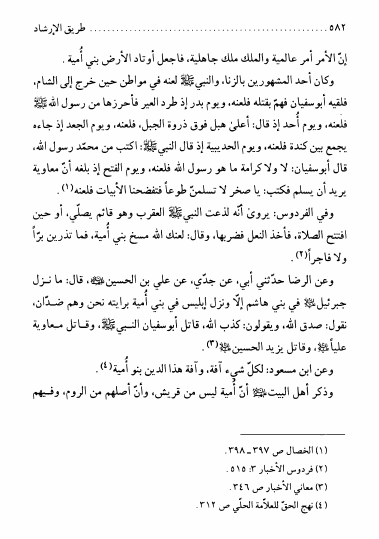 ٥٨٢ ........................................ طريق الإرشاد
إنّ الأمر أمر عالمية والملك ملك جاهلية، فاجعل أوتاد الأرض بني أُمية .
وكان أحد المشهورين بالزنا، والنبيّ ﷺ لعنه في مواطن حين خرج إلى الشام،
فلقيه أبوسفيان فهمّ بقتله فلعنه، ويوم بدر إذ طرد العير فأحرزها من رسول الله ﷺ
فلعنه، ويوم أُحد إذ قال: أعلىٰ هبل فوق ذروة الجبل، فلعنه، ويوم الجعد إذ جاءه
يجمع بين كندة فلعنه، ويوم الحديبية إذ قال النبيّ ﷺ: اكتب من محمّد رسول الله،
قال أبوسفيان: لا ولا كرامة ما هو رسول الله فلعنه، ويوم الفتح إذ بلغه أنّ معاوية
يريد أن يسلم فكتب: يا صخر لا تسلمنّ طوعاً فتفضحنا الأبيات فلعنه(١).
وفي الفردوس: يروىٰ أنّه لذعت النبيّ ﷺ العقرب وهو قائم يصلّي، أو حين
افتتح الصلاة، فأخذ النعل فضربها، وقال: لعنك الله مسخ بني أُمية، فما تذرين برّاً
ولا فاجراً(٢).
وعن الرضا حدّثني أبي، عن جدّي، عن علي بن الحسين ﷺ، قال: ما نـزل
جبرئيل ﷺ في بني هاشم إلّا ونزل إبليس في بني أُمية برايته نحن وهم ضدّان،
نقول: صدق الله، ويقولون: كذب الله، قاتل أبوسفيان النـبيّ ﷺ، وقـاتل معـاوية
علياً ﷺ، وقاتل يزيد الحسين ﷺ(٣).
وعن ابن مسعود: لكلّ شيء آفة، وآفة هذا الدين بنو أُمية(٤).
وذكر أهل البيت ﷺ أنّ أُمية ليس من قريش، وأنّ أصلهم من الروم، وفـيهم
(١) الخصال ص ٣٩٧ ـ ٣٩٨ .
(٢) فردوس الأخبار ٣: ٥١٥ .
(٣) معاني الأخبار ص ٣٤٦ .
(٤) نهج الحقّ للعلاّمة الحلّي ص ٣١٢ .